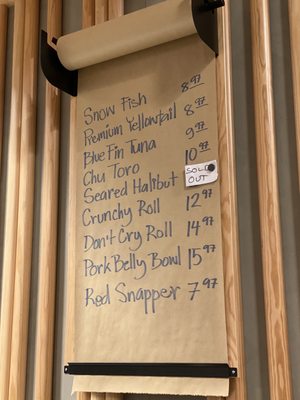 Snow Fish 8.97
Premium Yellowtail 8.97
Blue Fin Tuna 9.97
Chu Toro 10.97
Seared Halibut SOLD OUT
Crunchy Roll 12.97
Don't Cry Roll 14.97
Pork Belly Bowl 15.97
Red Snapper 7.97